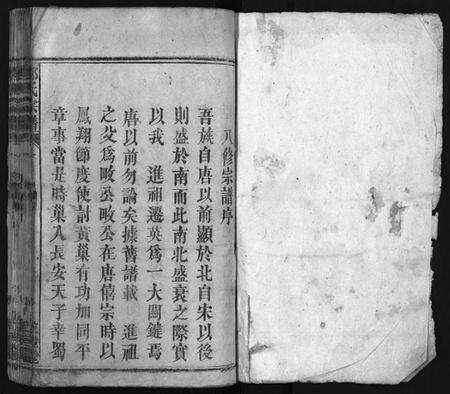 八修宗譜序
吾族自唐以前顯於北自宋以後
則盛於南而此南北盛衰之際實
以我 進祖遷英爲一大關鍵焉
唐以前勿論矣據舊譜載 進祖
之父爲畋公畋公在唐僖宗時以
鳳翔節度使討黃巢有功加同平
章事當是時巢入長安天子幸蜀